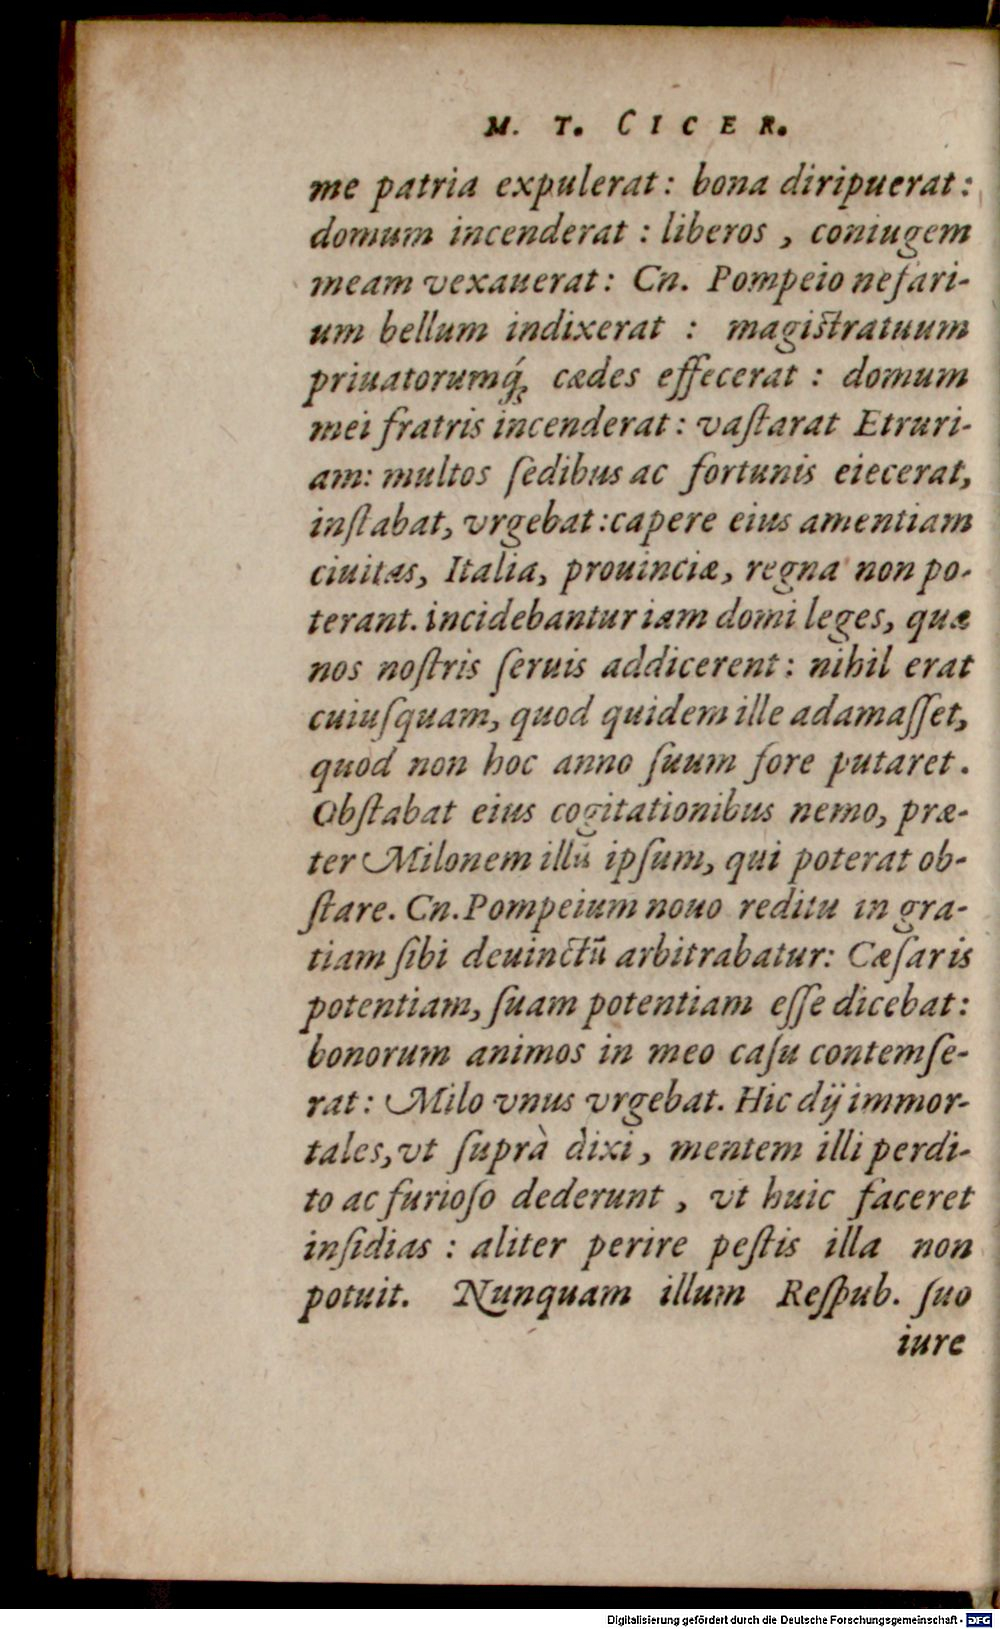 M. T. CICER.
me patria expulerat: bona diripuerat:
domum incenderat : liberos , coniugem
meam vexauerat: Cn. Pompeio nefari-
um bellum indixerat : magistratuum
priuatorumq́; cædes effecerat : domum
mei fratris incenderat: vaſtarat Etruri-
am: multos ſedibus ac fortunis eiecerat,
inſtabat, vrgebat:capere eius amentiam
ciuitas, Italia, prouinciæ, regna non po-
terant. incidebantur iam domi leges, quæ
nos noſtris ſeruis addicerent: nihil erat
cuiuſquam, quod quidem ille adamaſſet,
quod non hoc anno ſuum fore putaret.
Obſtabat eius cogitationibus nemo, præ-
ter Milonem illũ ipſum, qui poterat ob-
ſtare. Cn.Pompeium nouo reditu in gra-
tiam ſibi deuinctũ arbitrabatur: Cæſaris
potentiam, ſuam potentiam eſſe dicebat:
bonorum animos in meo caſu contemſe-
rat: Milo vnus vrgebat. Hic dij immor-
tales, vt ſuprà dixi, mentem illi perdi-
to ac furioſo dederunt , vt huic faceret
inſidias : aliter perire peſtis illa non
potuit. Nunquam illum Reſpub. ſuo
iure
Digitalisierung gefördert durch die Deutsche Forschungsgemeinschaft - DFG